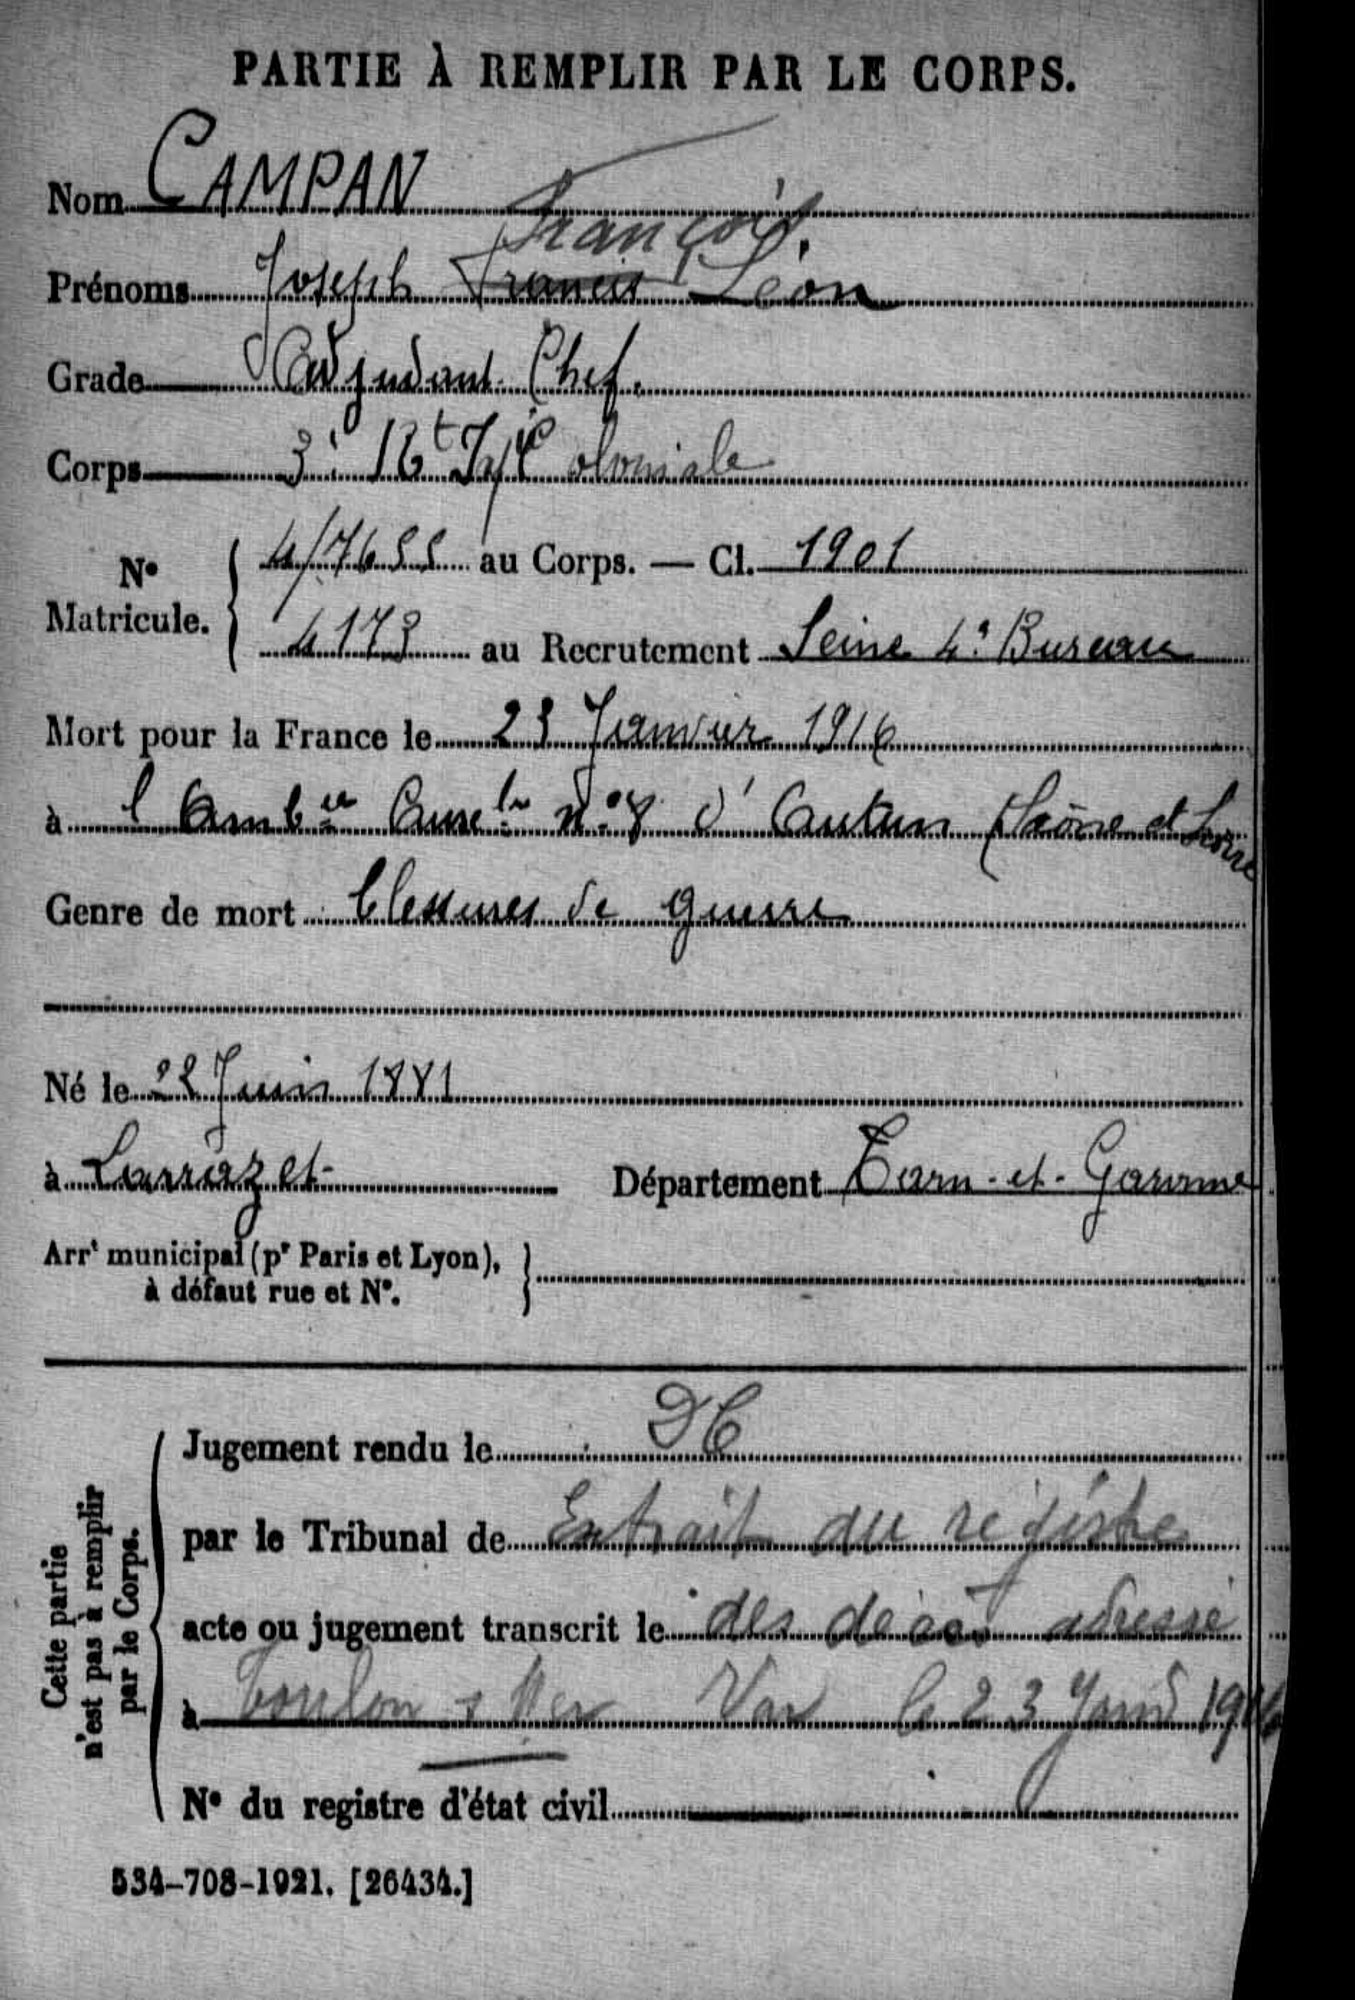 PARTIE À REMPLIR PAR LE CORPS.
Nom CAMPAN
François
Prénoms Joseph Francis Léon
Grade Adjudant Chef.
Corps 3e Rt Infie Coloniale
No Matricule. { 4/7655 au Corps. — Cl. 1901
4173 au Recrutement Seine 4e Bureau
Mort pour la France le 23 Janvier 1916
à l'Ambce n° 8 d'Autun (Saône et Loire
Genre de mort blessures de guerre
Né le 22 Juin 1881
à Larrazet Département Tarn-et-Garonne
Arrt municipal (pr Paris et Lyon),
à défaut rue et N°.
Cette partie
n'est pas à remplir
par le Corps.
Jugement rendu le DC
par le Tribunal de Extrait du registre
acte ou jugement transcrit le des décès adressé
à Toulon s Mer Var le 23 Janv 1916
N° du registre d'état civil
534-708-1921. [26434.]